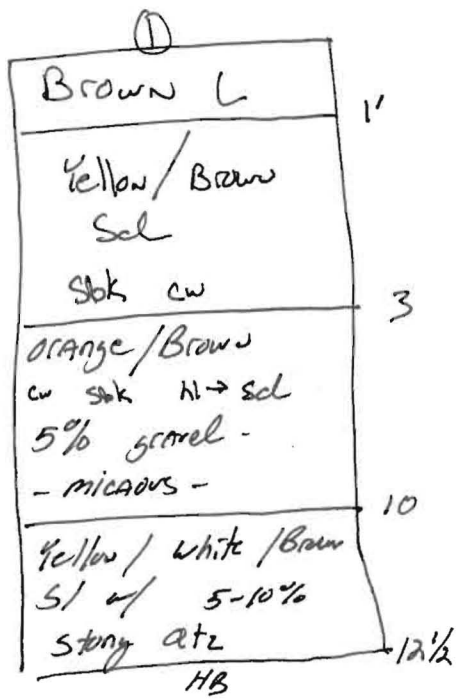 ①
Brown L
1'
Yellow / Brown
Scl
sbk cw
3
Orange / Brown
cw sbk hl → scl
5% gravel -
- micaous -
10
Yellow / white / Brown
Sl w/ 5-10%
stony qtz
12 1/2
HB